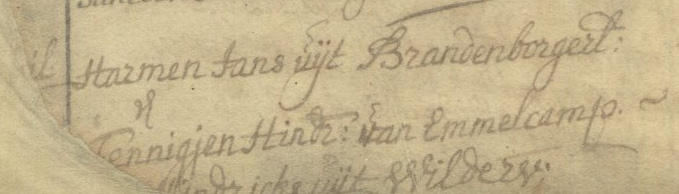 Harmen Jans uijt Brandenborgerl:
Tennigjen Hindr: van Emmelcamp. ~
Hindricks uijt Wilderv: